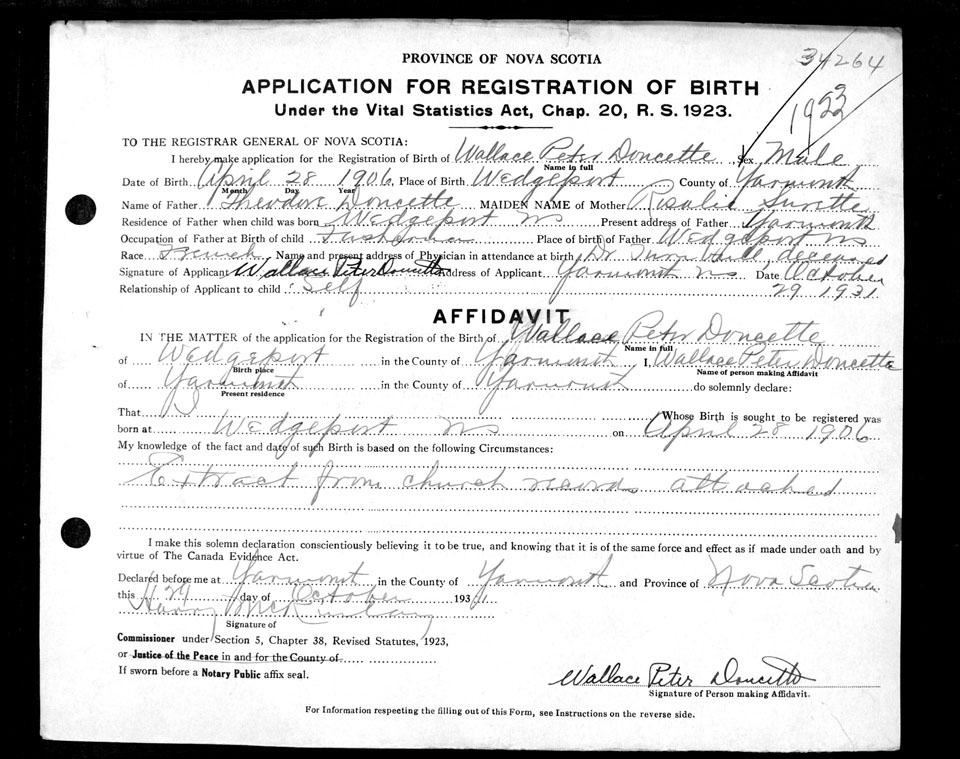 34264
PROVINCE OF NOVA SCOTIA
APPLICATION FOR REGISTRATION OF BIRTH
Under the Vital Statistics Act, Chap. 20, R. S. 1923.
TO THE REGISTRAR GENERAL OF NOVA SCOTIA:
I hereby make application for the Registration of Birth of Wallace Peter Doncette Sex Male
Name in full
Date of Birth April 28 1906 Place of Birth Wedgeport County of Yarmouth
Month Day Year
Name of Father Theodore Doncette MAIDEN NAME of Mother Rosalie Surette
Residence of Father when child was born Wedgeport NS Present address of Father Yarmouth
Occupation of Father at Birth of child Fisherman Place of birth of Father Wedgeport NS
Race French Name and present address of Physician in attendance at birth Dr deceased
Signature of Applicant Wallace Peter Doncette Address of Applicant Yarmouth NS Date October
Relationship of Applicant to child Self 29 1931
AFFIDAVIT
IN THE MATTER of the application for the Registration of the Birth of Wallace Peter Doncette
Name in full
of Wedgeport in the County of Yarmouth I, Wallace Peter Doncette
Birth place Name of person making Affidavit
of Yarmouth in the County of Yarmouth do solemnly declare:
Present residence
That I Whose Birth is sought to be registered was
born at Wedgeport NS on April 28 1906
My knowledge of the fact and date of such Birth is based on the following Circumstances:
Extract from church records attached
I make this solemn declaration conscientiously believing it to be true, and knowing that it is of the same force and effect as if made under oath and by
virtue of The Canada Evidence Act.
Declared before me at Yarmouth in the County of Yarmouth and Province of Nova Scotia
this 29 day of October 1931
Harry
Signature of
Commissioner under Section 5, Chapter 38, Revised Statutes, 1923,
or Justice of the Peace in and for the County of
If sworn before a Notary Public affix seal.
Wallace Peter Doncette
Signature of Person making Affidavit.
For Information respecting the filling out of this Form, see Instructions on the reverse side.